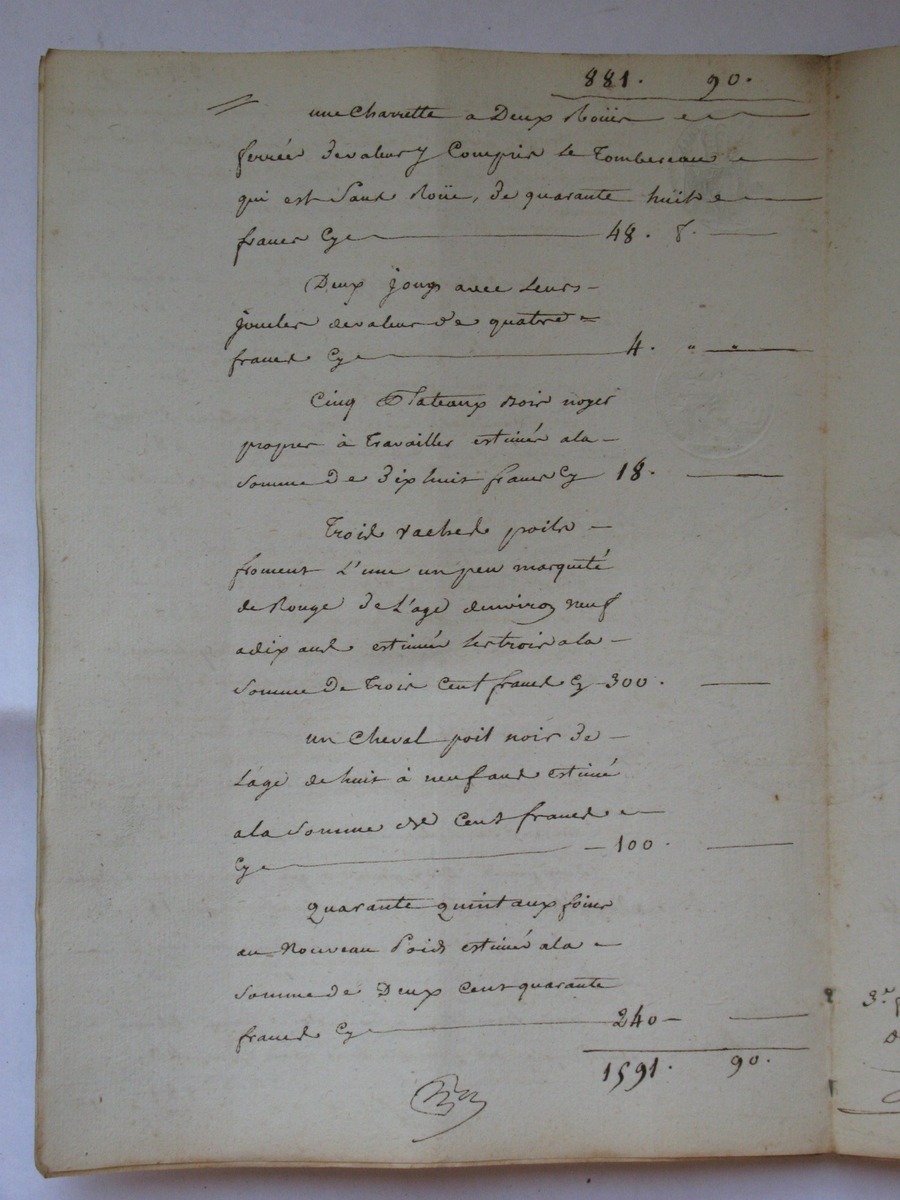 881. 90.
une Charrette a Deux Roües
ferrée devaleur y Compris Le Tombereau
qui est Sans Roüe, de quarante huit
francs Cy 48.
Deux jougs avec Leurs
joucles devaleur de quatre
francs Cy 4. " "
Cinq Plateaux Bois noyer
propres à Travailler estimés ala
Somme De Dix huit francs Cy 18.
Trois vaches poils
froment L'une un peu marqueté
de Rouge de L'age denviron neuf
adix ans estimées Les trois ala
Somme De Trois Cent francs Cy 300.
un Cheval poil noir de
L'age de huit à neuf ans estimé
ala Somme de Cent francs
Cy 100.
Quarante quintaux foins
au Nouveau Poids estimés ala
Somme de Deux Cent quarante
francs Cy 240
1591. 90.
3.e